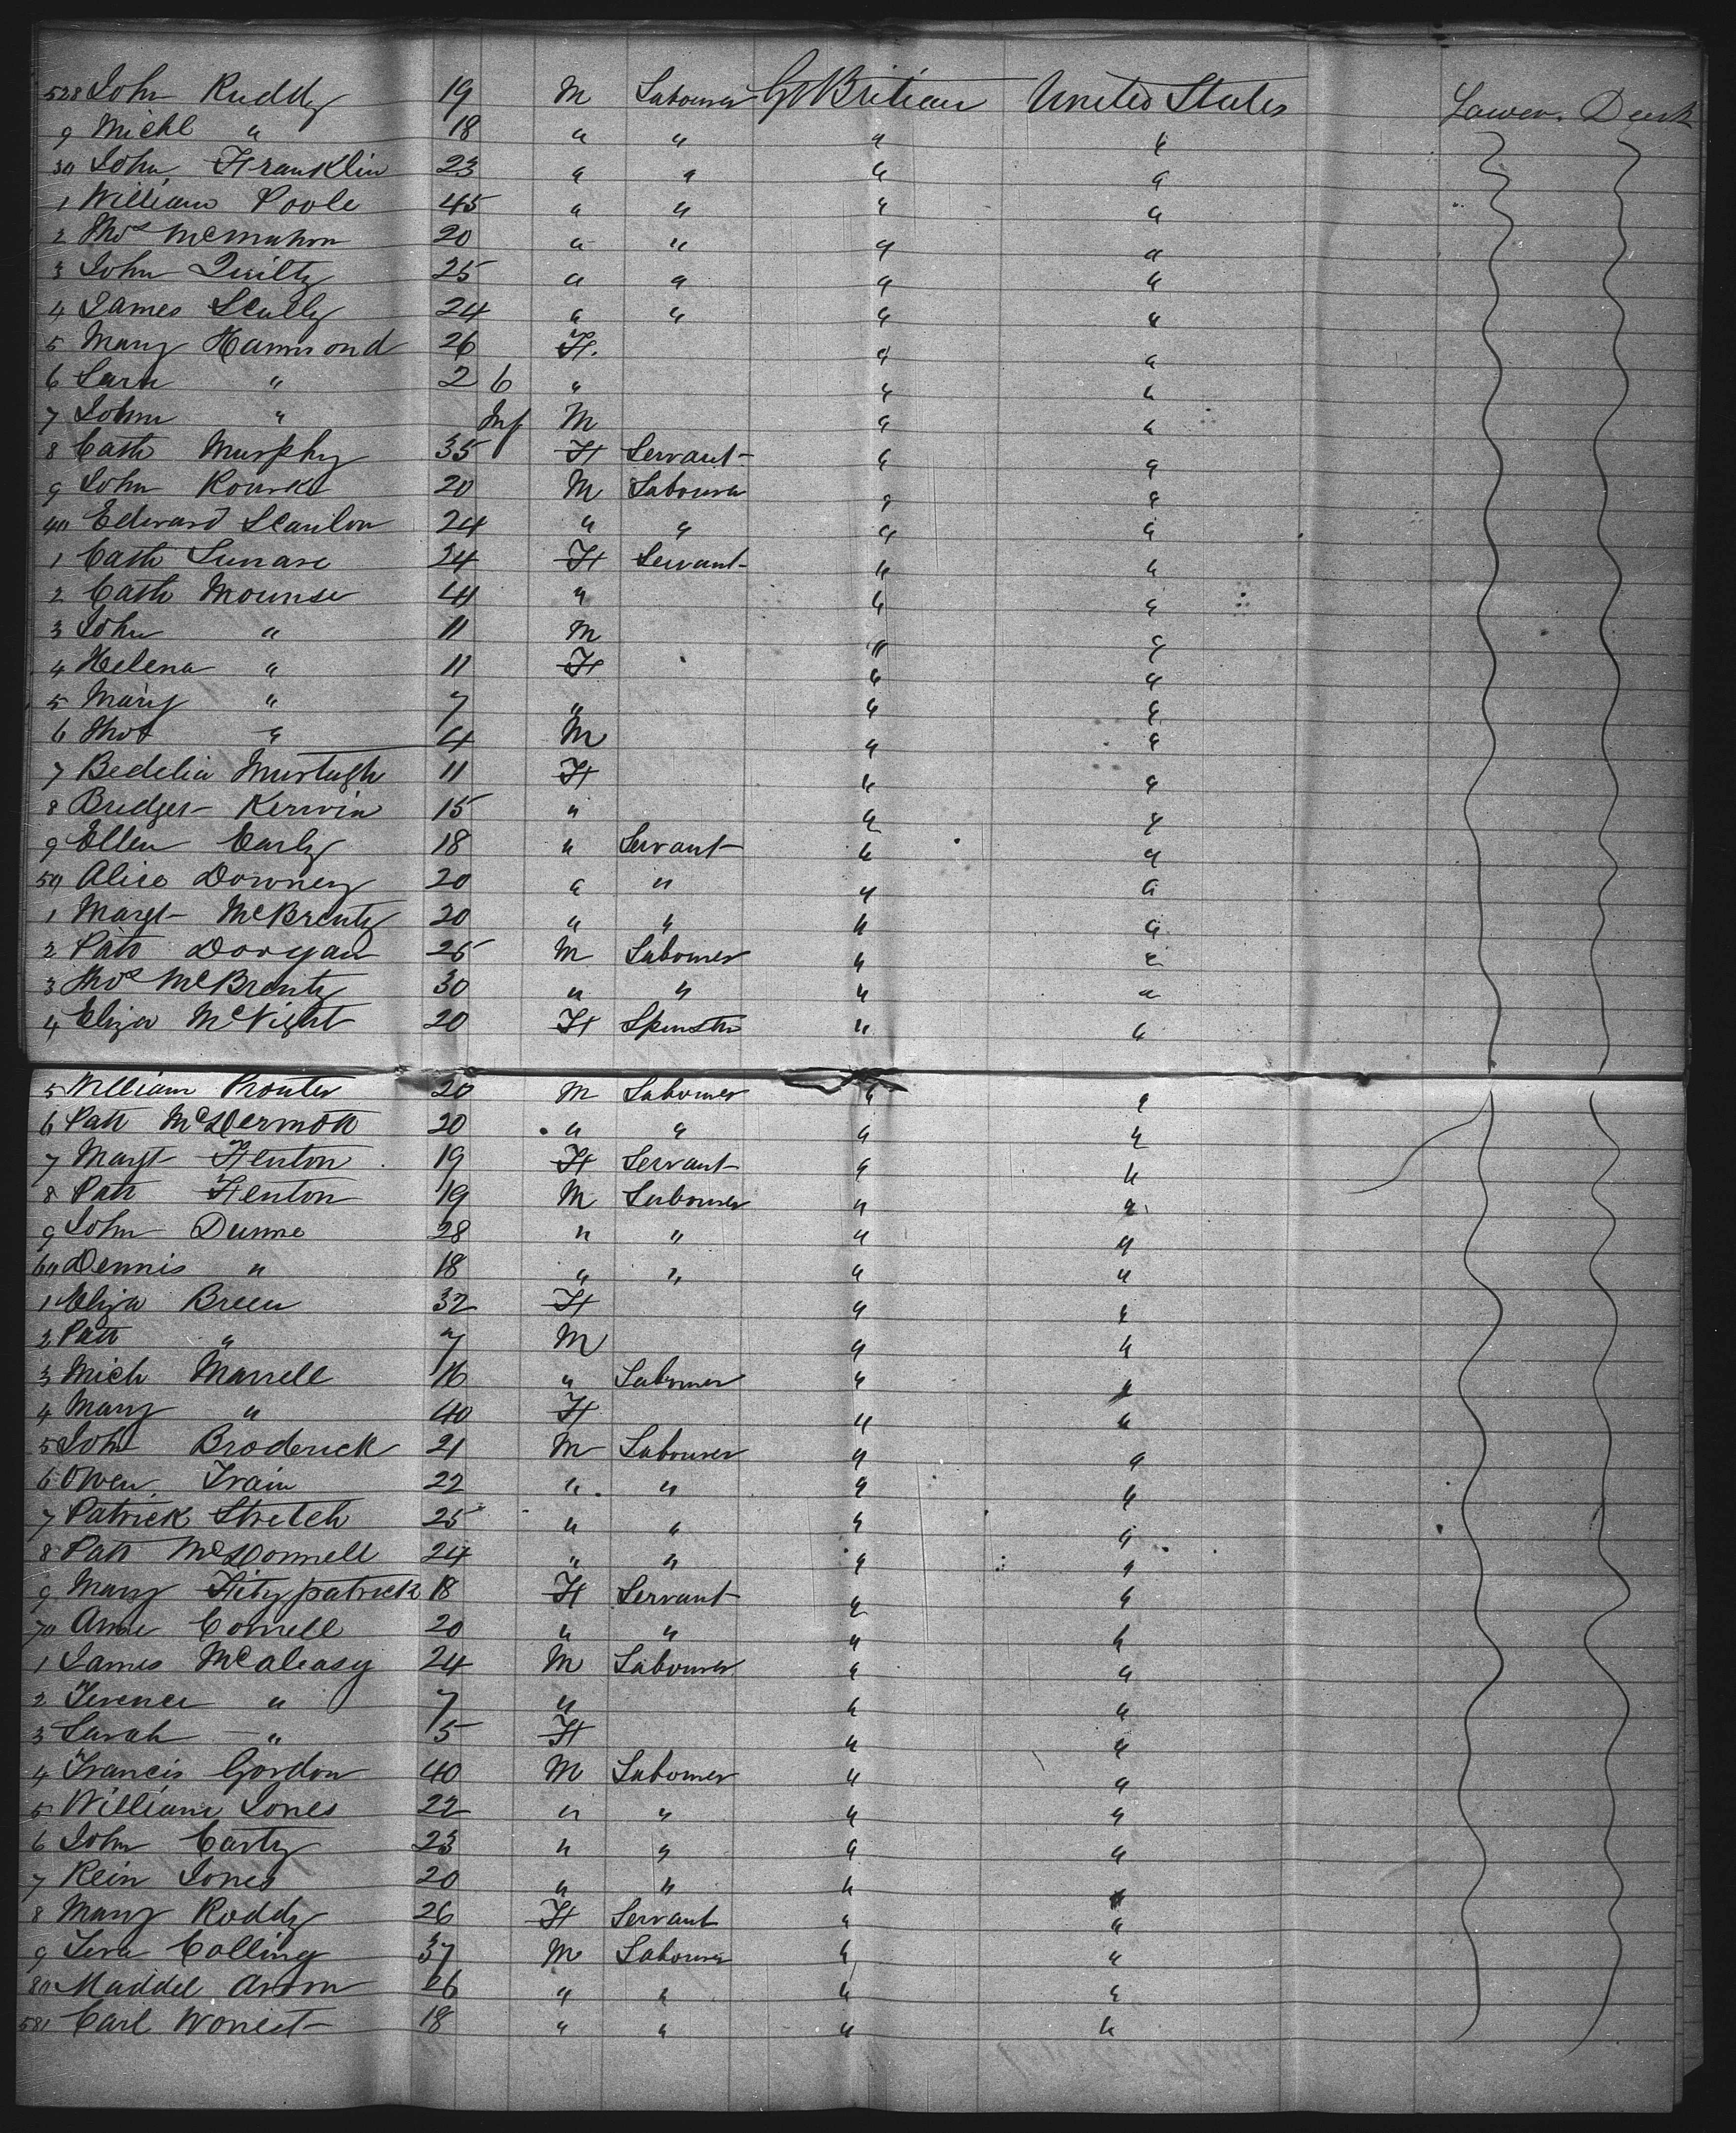 528 John Ruddy 19 M Labourer Gt Britian United States Lower Deck
9 Michl " 18 " " " "
30 John Franklin 23 " " " "
1 William Poole 45 " " " "
2 Thos McMahon 20 " " " "
3 John Quilty 25 " " " "
4 James Scully 24 " " " "
5 Mary Hammond 26 F. " "
6 Sara " 2 6 " " "
7 John " Inf M " "
8 Cath Murphy 35 F Servant " "
9 John Rourke 20 M Labourer " "
40 Edward Scanlon 24 " " " "
1 Cath 24 F Servant " "
2 Cath Mounse 41 " " "
3 John " 11 M " "
4 Helena " 11 F " "
5 Mary " 7 " " "
6 Thos " 4 M " "
7 Bedelia Murtagh 11 F " "
8 Bridget Kerwin 15 " " "
9 Ellen Early 18 " Servant " "
50 Alice Downey 20 " " " "
1 Margt McBrenty 20 " " " "
2 Patt Dorgan 25 M Labourer " "
3 Thos McBrenty 30 " " " "
4 Eliza McNight 20 F Spinster " "
5 William 20 M Labourer " "
6 Patt McDermott 20 " " " "
7 Margt Fenton 19 F Servant " "
8 Patt Fenton 19 M Labourer " "
9 John Dunne 28 " " " "
60 Dennis " 18 " " " "
1 Eliza Breen 32 F " "
2 Patt " 7 M " "
3 Mich Marrell 16 " Labourer " "
4 Mary " 40 F " "
5 John Broderick 21 M Labourer " "
6 Owen Train 22 " " " "
7 Patrick Stretch 25 " " " "
8 Patt McDonnell 24 " " " "
9 Mary Fitzpatrick 18 F Servant " "
70 Anne Connell 20 " " " "
1 James McAleasy 24 M Labourer " "
2 Terence " 7 " " "
3 Sarah " 5 F " "
4 Francis Gordon 40 M Labourer " "
5 William Jones 22 " " " "
6 John Carty 23 " " " "
7 Rein Jones 20 " " " "
8 Mary Roddy 26 F Servant " "
9 Colling 37 M Labourer " "
80 Maddel 26 " " " "
581 Carl 18 " " " "